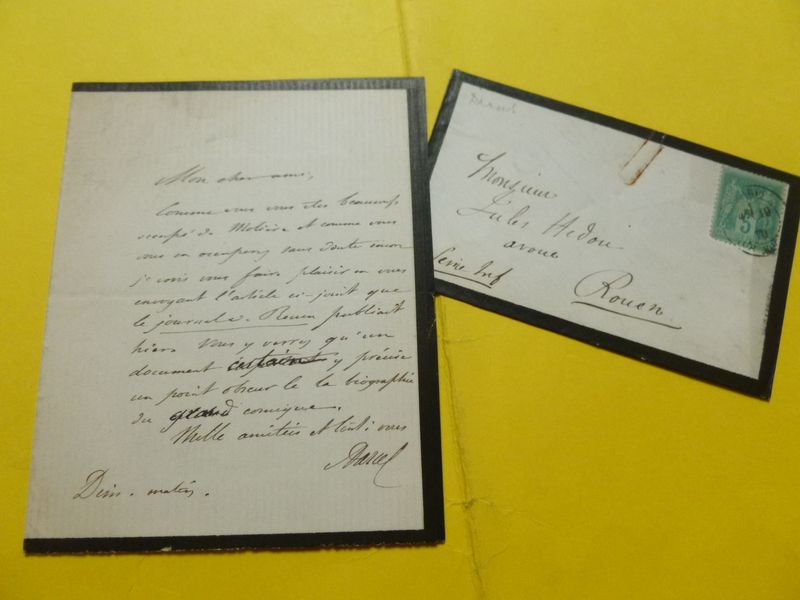 Mon cher ami,
Comme vous vous êtes beaucoup
occupé de Molière et comme vous
vous en occuperez sans doute encore
je crois vous faire plaisir en vous
envoyant l'article ci-joint que
le journal de Rouen publiait
hier. Vous y verrez qu'un
document y précise
un point obscur de la biographie
du grand comique.
Mille amitiés et tout à vous
Darcel
Dim. matin.
Darcel
Monsieur
Jules Hédou
avoué
Rouen
Seine Inf
5